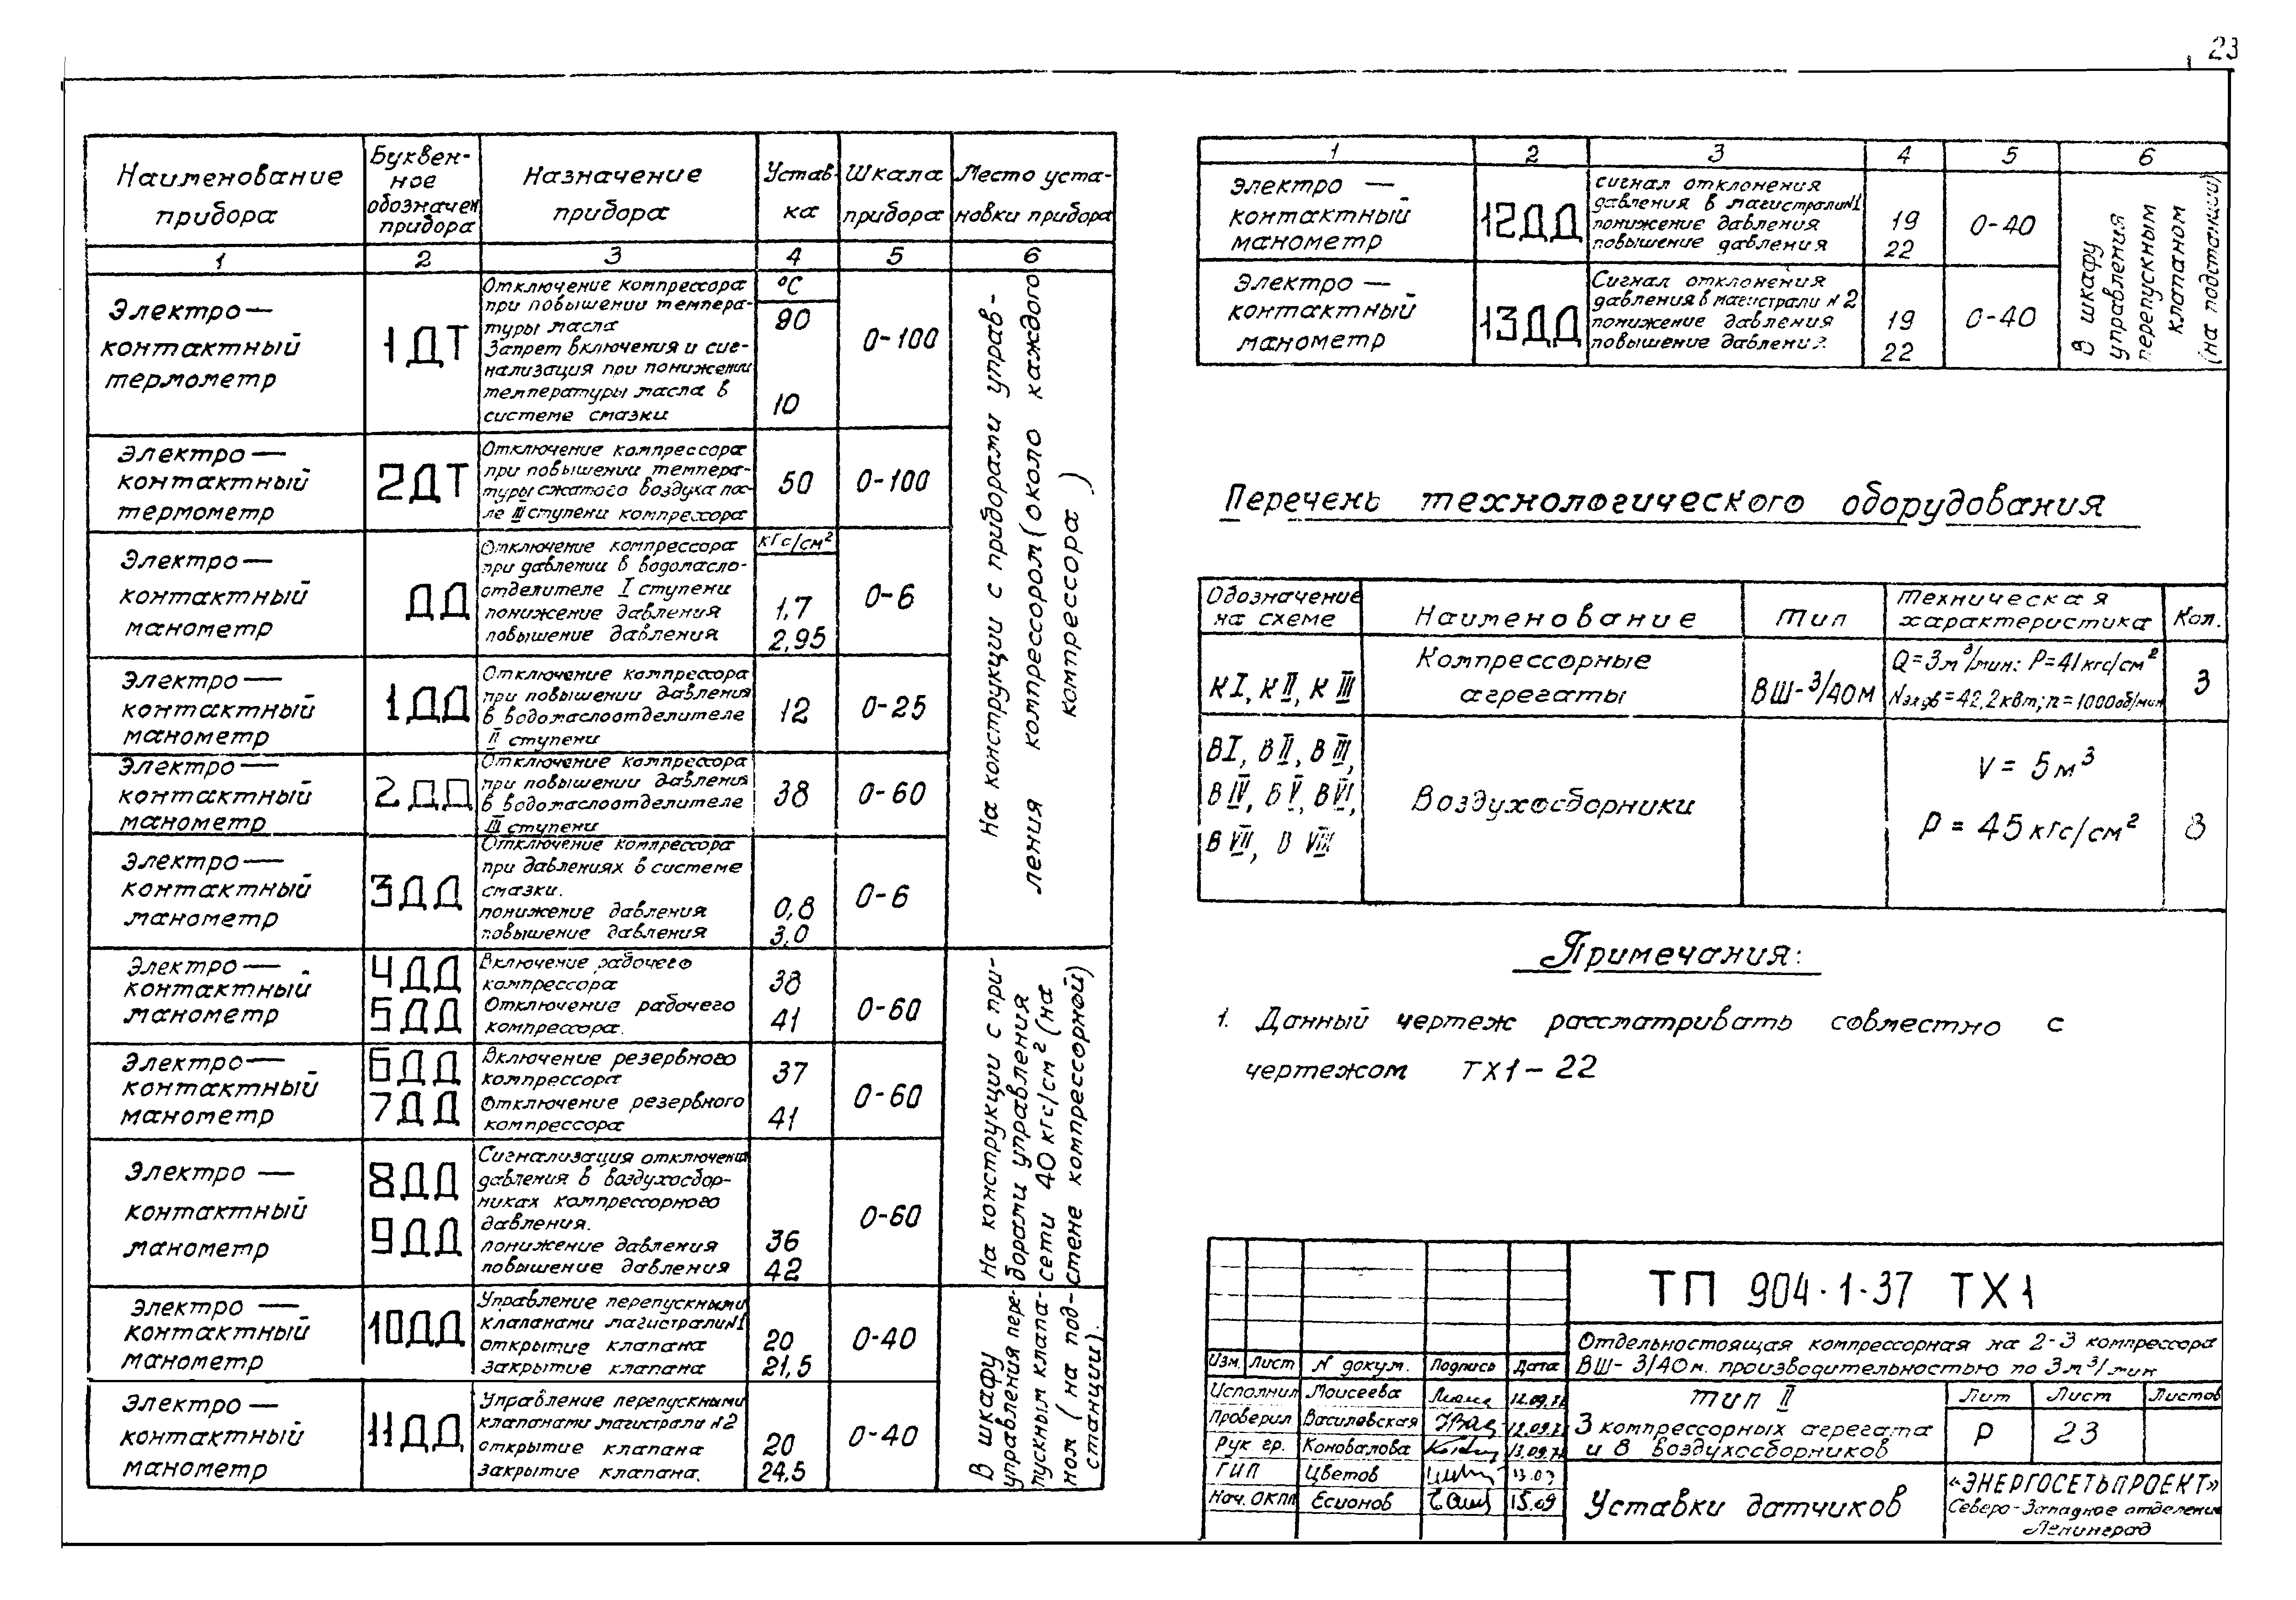 23
Наименование прибора
Буквенное обозначен прибора
Назначение прибора
Уставка
Шкала прибора
Место установки прибора
1 2 3 4 5 6
Электро—
контактный
термометр
1ДТ
Отключение компрессора
при повышении темпера-
туры масла
Запрет включения и сиг-
нализация при понижении
температуры масла в
системе смазки
°С
90
10
0-100
Электро—
контактный
термометр
2ДТ
Отключение компрессора
при повышении темпера-
туры сжатого воздуха пос-
ле III ступени компрессора
50
0-100
Электро—
контактный
манометр
ДД
Отключение компрессора
при давлении в водомасло-
отделителе I ступени
понижение давления
повышение давления
кгс/см²
1,7
2,95
0-6
Электро—
контактный
манометр
1ДД
Отключение компрессора
при повышении давления
в водомаслоотделителе
II ступени
12
0-25
Электро—
контактный
манометр
2ДД
Отключение компрессора
при повышении давления
в водомаслоотделителе
III ступени
38
0-60
Электро—
контактный
манометр
3ДД
Отключение компрессора
при давлениях в системе
смазки.
понижение давления
повышение давления
0,8
3,0
0-6
На конструкции с приборами управ-
ления компрессором (около каждого
компрессора)
Электро—
контактный
манометр
4ДД
5ДД
Включение рабочего
компрессора
Отключение рабочего
компрессора.
38
41
0-60
Электро—
контактный
манометр
6ДД
7ДД
Включение резервного
компрессора
Отключение резервного
компрессора
37
41
0-60
Электро—
контактный
манометр
8ДД
9ДД
Сигнализация отключения
давления в воздухосбор-
никах компрессорного
давления.
понижение давления
повышение давления
36
42
0-60
На конструкции с при-
борами управления
сети 40 кгс/см² (на
стене компрессорной)
Электро—
контактный
манометр
10ДД
Управление перепускными
клапанами магистрали N1
открытие клапана
закрытие клапана
20
21,5
0-40
Электро—
контактный
манометр
11ДД
Управление перепускными
клапанами магистрали N2
открытие клапана
закрытие клапана.
20
24,5
0-40
В шкафу
управления пере-
пускным клапа-
ном (на под-
станции).
1 2 3 4 5 6
Электро—
контактный
манометр
12ДД
сигнал отклонения
давления в магистрали N1
понижение давления
повышение давления
19
22
0-40
Электро—
контактный
манометр
13ДД
Сигнал отклонения
давления в магистрали N2
понижение давления
повышение давления.
19
22
0-40
В шкафу
управления
перепускным
клапаном
(на подстанции)
Перечень технологического оборудования
Обозначение на схеме
Наименование
Тип
Техническая характеристика
Кол.
КI, КII, КIII
Компрессорные
агрегаты
ВШ-3/40М
Q=3м³/мин: P=41кгс/см²
Nэл.дв=42,2квт; n=1000об/мин
3
ВI, ВII, ВIII,
ВIV, ВV, ВVI,
ВVII, ВVIII
Воздухосборники
V= 5м³
P = 45кгс/см²
8
Примечания:
1. Данный чертеж рассматривать совместно с
чертежом ТХ1-22
ТП 904·1·37 ТХ1
Отдельностоящая компрессорная на 2-3 компрессора
ВШ-3/40м. производительностью по 3м³/мин
Изм. Лист N докум. Подпись Дата
Исполнил Моисеева
Проверил Василевская
Рук гр. Коновалова
ГИП Цветов 13.09
Нач. ОКПП Есионов 15.09
тип II
3 компрессорных агрегата
и 8 воздухосборников
Лит Лист Листов
Р 23
Уставки датчиков
«ЭНЕРГОСЕТЬПРОЕКТ»
Северо-Западное отделение
Ленинград